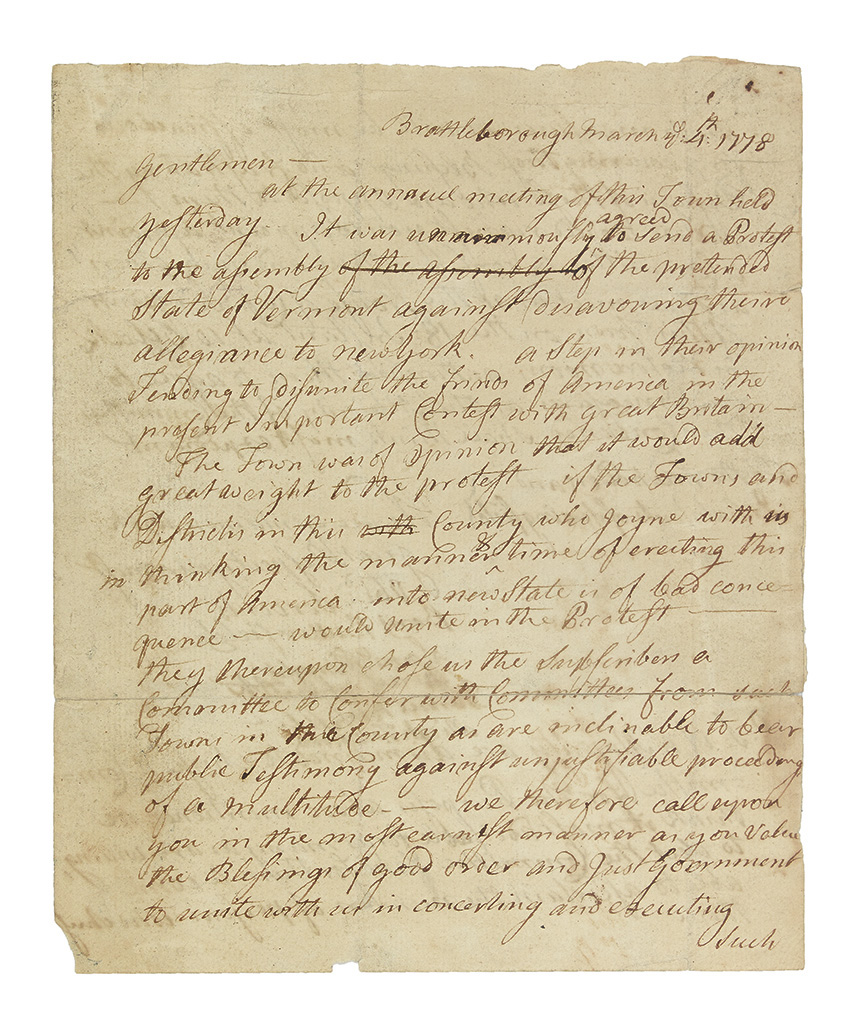 Brattleborough March ye: 4th: 1778
Gentlemen —
at the annauel meeting of this Town held
yesterday It was unanimously agreed to send a Protest
to the assembly of the assembly of the pretended
State of Vermont against disavouing theire
allegiance to newyork. a Step in their opinion
Tending to disunite the frinds of America in the
present Important Contest with great Britain —
The Town was of opinion that it would add
great weight to the protest if the Towns and
Districts in this with County who Joyne with us
in thinking the manner & time of erecting this
part of America into new State is of bad conce=
quence — would unite in the Protest —
they thereupon chose us the Subscribers a
Committee to Confer with Committees from such
Towns in this County as are inclinable to bear
public Testimony against unjustifiable proceeding
of a multitude — we therefore call upon
you in the most earnest manner as you value
the Blessings of good order and Just Goornment
to unite with us in concerting and executing
such